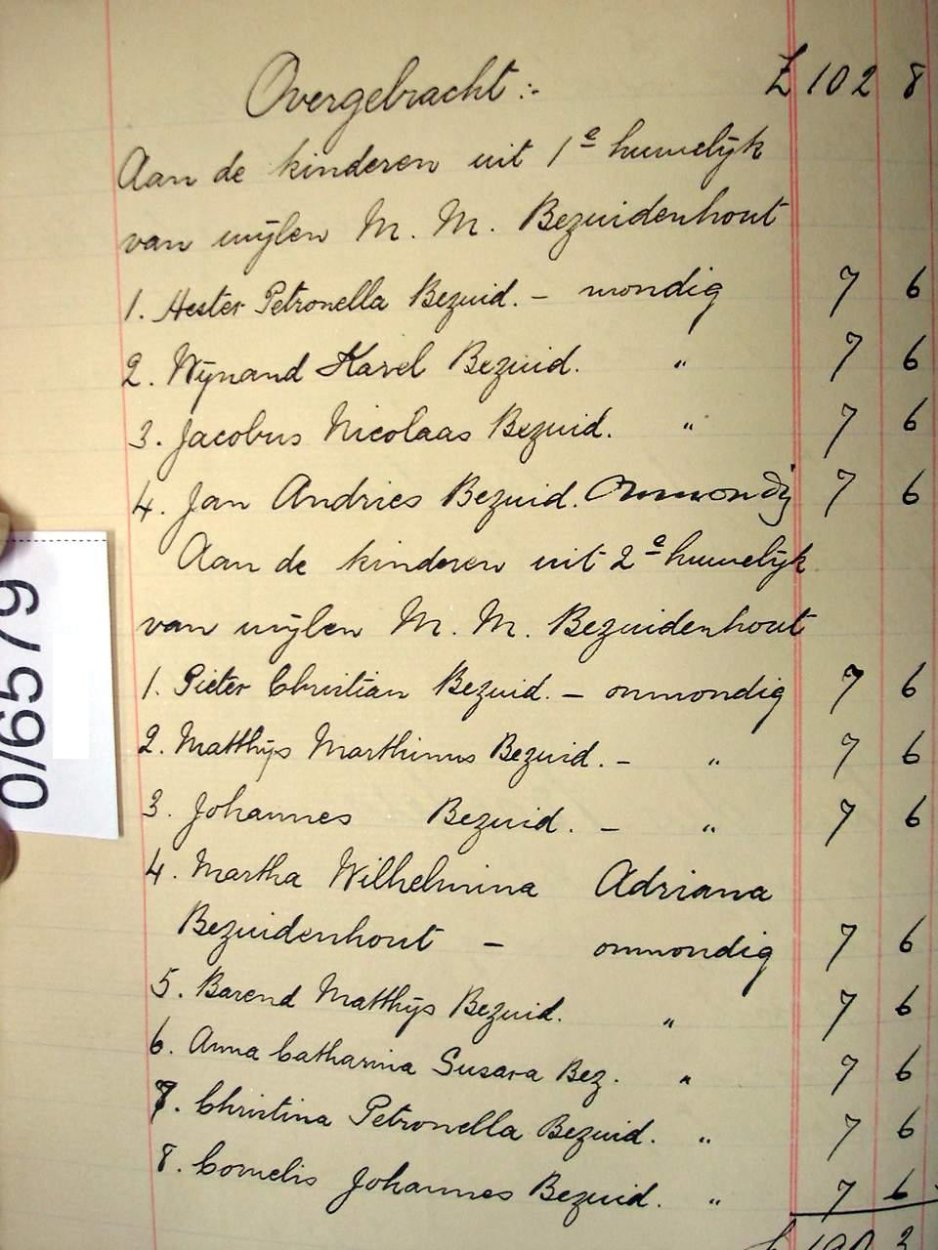 Overgebracht :- £ 102 8
Aan de kinderen uit 1e huwelijk
van wijlen M. M. Bezuidenhout
1. Hester Petronella Bezuid. – mondig 7 6
2. Wynand Karel Bezuid. " 7 6
3. Jacobus Nicolaas Bezuid. " 7 6
4. Jan Andries Bezuid. Onmondig 7 6
Aan de kinderen uit 2e huwelijk
van wijlen M. M. Bezuidenhout
1. Pieter Christian Bezuid. – onmondig 7 6
2. Matthijs Marthinus Bezuid. – " 7 6
3. Johannes Bezuid. – " 7 6
4. Martha Wilhelmina Adriana
Bezuidenhout – onmondig 7 6
5. Barend Matthijs Bezuid. " 7 6
6. Anna Catharina Susara Bez. " 7 6
7. Christina Petronella Bezuid. " 7 6
8. Cornelis Johannes Bezuid. " 7 6
0/6579